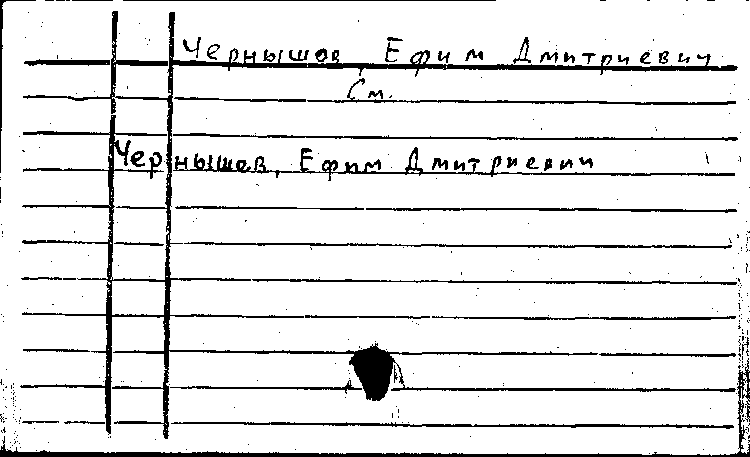 Чернышов, Ефим Дмитриевич
См.
Чернышев, Ефим Дмитриевич